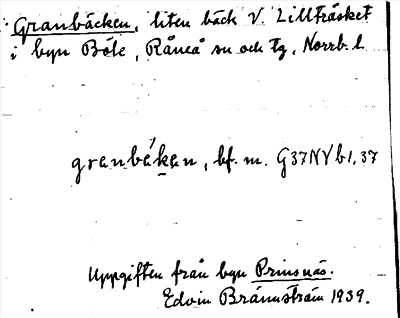 Granbäcken, liten bäck V. Lillträsket
i byn Böle, Råneå sn och tg, Norrb. l.
granbäkan, bf. m. G37NVb1,37
Uppgiften från byn Prinsnäs.
Edvin Brännström 1939.